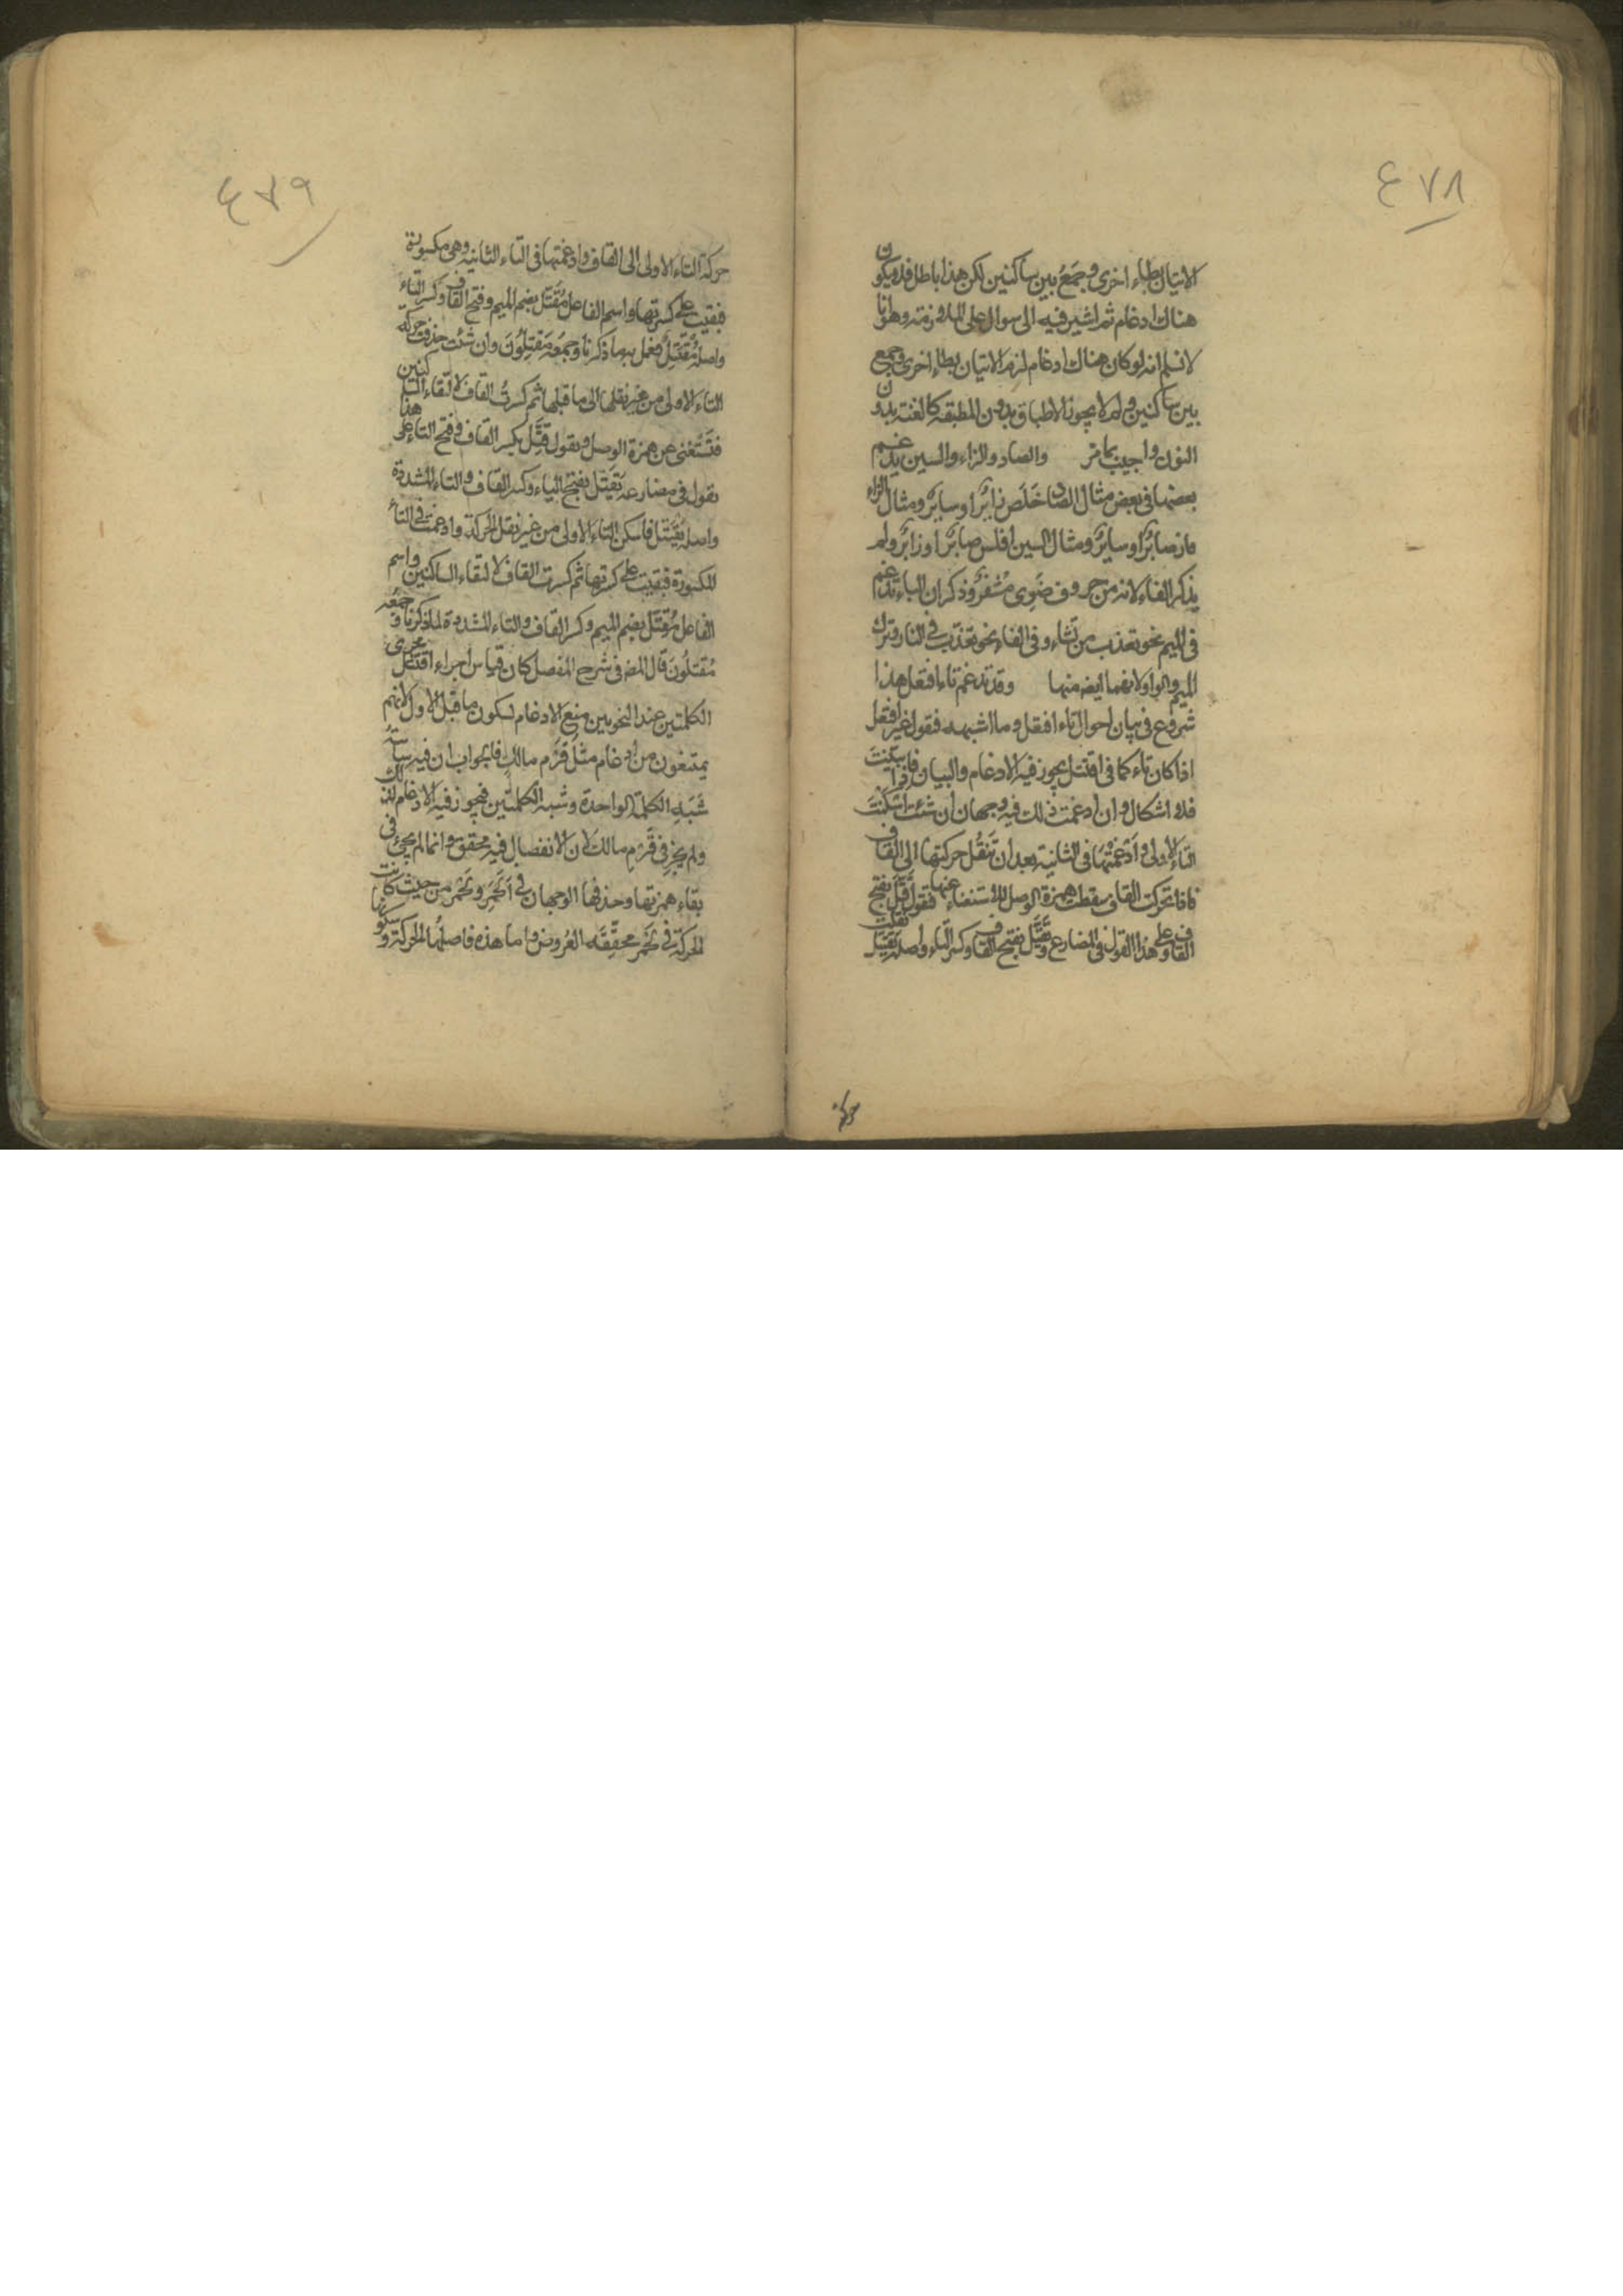 ٤٧٨
الاتيان بطاء اخرى وجَمَعُ بين ساكنين لكن هذا باطل فلا يكون
هناك ادغام ثم اشير فيه الى سوال على الملازمة وهو انا
لا نسلم انه لو كان هناك ادغام لزم الاتيان بطاء اخرى وجمع
بين ساكنين ولم لا يجوز الاطباق بدون المطبقه كالغنة بدون
النون واجيب بما مر والصاد والزاء والسين يدغم
بعضها فى بعض مثال الصاد خَلَصَ زايرًا او سايرًا ومثال الزاء
فاز صابرًا او سايرًا ومثال السين افلس صابرًا او زايرًا ولم
يذكر الفاء لانه من حروف ضَوِى مُشْفَر وذكر ان الباء تدغم
فى الميم نحو يعذب من يشاء وفى الفاء نحو يعذب فى النار وترك
الميم والواو لانفهما ايضا منها وقد تدغم تاء افتعل هذا
شروع فى بيان احوال تاء افتعل وما اشبهه فنقول عين افتعل
اذا كان تاء كما فى اقتتل يجوز فيه الادغام والبيان فان بينت
فلا اشكال وان ادغمت ذلك فيه وجهان ان شئت اسكنت
التاء الاولى وادغمتها فى الثانية بعد ان تنقل حركتها الى القاف
فاذا تحركت القاف سقطت همزة الوصل للاستغناء عنها فتقول قَتَّلَ بفتح
القاف وعلى هذا القول فى المضارع يَقَتِّل بفتح القاف وكسر التاء واصله يقتتل نقلت
حركة
٤٧٩
حركة التاء الاولى الى القاف وادغمتها فى التاء الثانيه وهى مكسورة
فبقيت على كسرتها واسم الفاعل مُقَتِّل بضم الميم وفتح القاف وكسر التاء
واصله مُقْتَتِلٌ فعمل به ما ذكرنا وجمعه مُقَتِّلُونَ وان شئت حذفت حركة
التاء الاولى من غير نقلها الى ما قبلها ثم كسرت القاف لالتقاء الساكنين
فتستغنى عن همزة الوصل ويقول قِتَّل بكسر القاف وفتح التاء على هذا
يقول فى مضارعه يَقِتِّل بفتح الياء وكسر القاف والتاء المشددة
واصله يَقْتَتِل فاسكن التاء الاولى من غير نقل الحركة وادغمت فى التاء
المكسورة فبقيت على كسرتها ثم كسرت القاف لالتقاء الساكنين واسم
الفاعل مُقِتِّل بضم الميم وكسر القاف والتاء المشددة لما ذكرنا وجمعه
مُقِتِّلُونَ قال المص فى شرح المفصل كان قياس اجراء اقتتل مجرى
الكلمتين عند النحويين منع الادغام لسكون ما قبل الاول لانهم
يمتنعون من ادغام مثل قَرْم مالك فالجواب ان فيه شائبة
شَبَهِ الكلمة الواحدة وشبه الكلمتين فيجوز فيه الادغام لذلك
ولم يجز فى قَرْمِ مالك لان الانفصال فيه محقق وانما لم يجئ فى
بقاء همزتها وحذفها الوجهان فى اَلَحْمَر ولَحْمَر من حيث كانت
الحركة فى لَحْمَر محققة العروض واما هذه فاصلها الحركة وسكونها